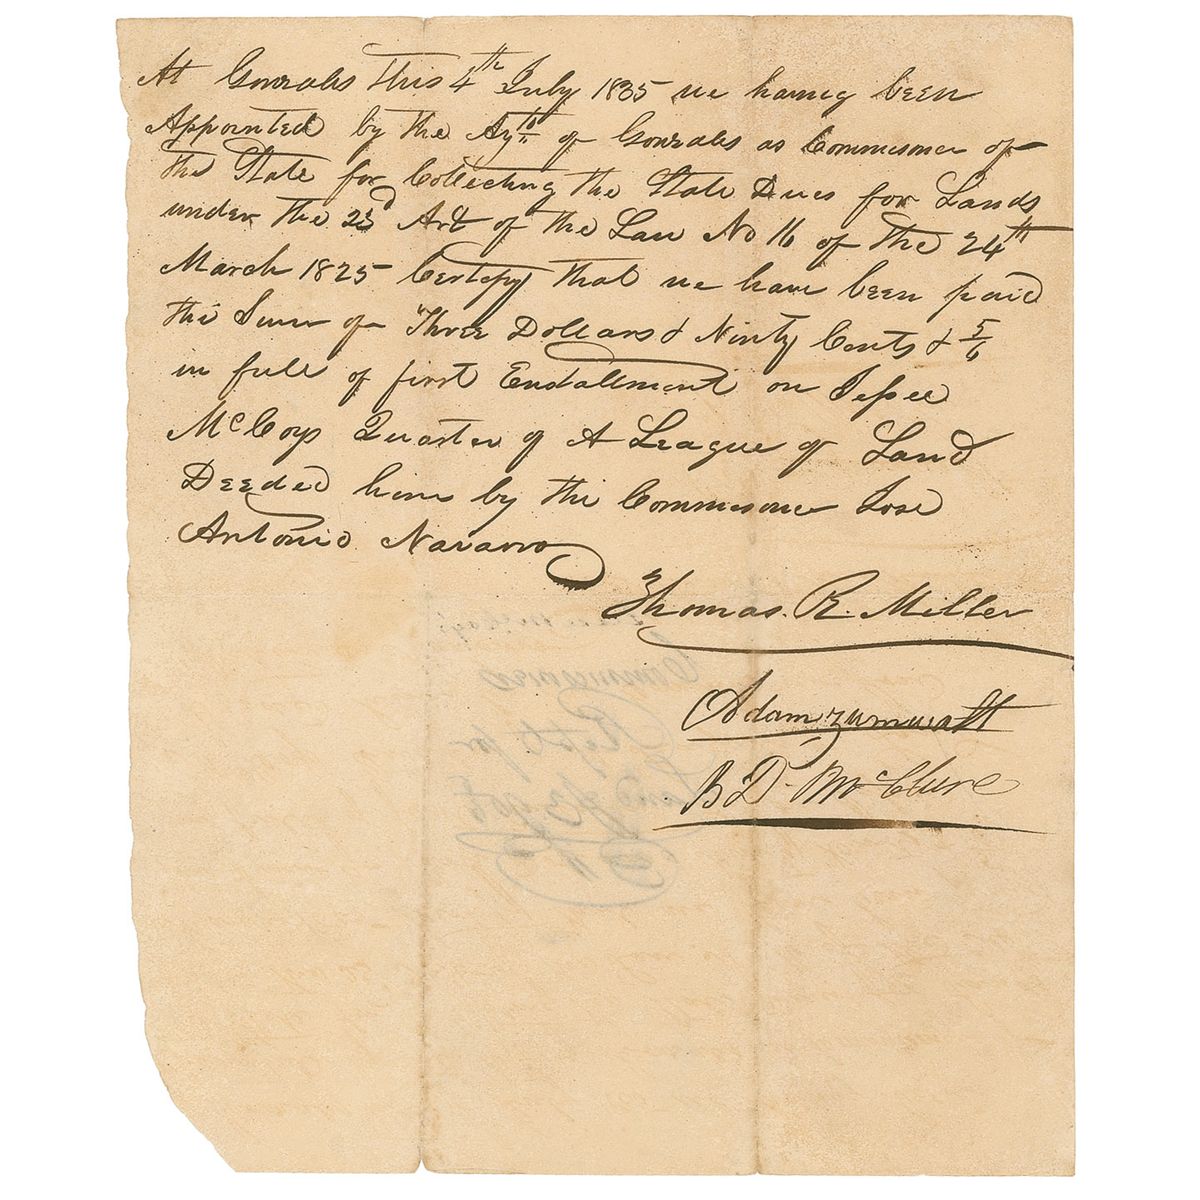 At Gonzales this 4th July 1835 we having been
Appointed by the Ayto of Gonzales as Commissner of
the State for Collecting the State Dues for Lands
under the 23d Art of the Law No 16 of the 24th
March 1825 Certefy that we have been paid
the Sum of Three Dollars & Ninty Cents & 5/6
in full of first Enstallment on Jessee
McCoys Quarter of A League of Land
Deeded him by the Commissner Jose
Antonio Navarro
Thomas. R. Miller
Adam zumwalt
B D. McClure
Commisners
Rcpt for
Land $3.90 5/6